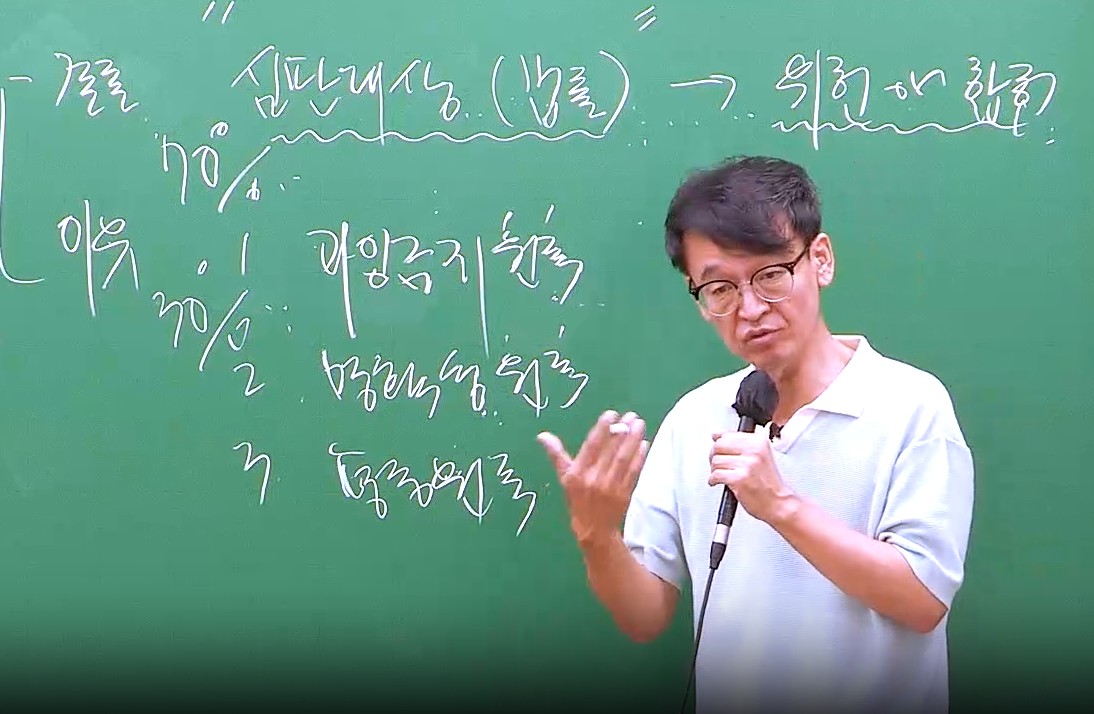 - 결론 심판대상 (법률) → 위헌 or 합헌
70%
이유 1 과잉금지원칙
30%
2 명확성원칙
3 평등원칙